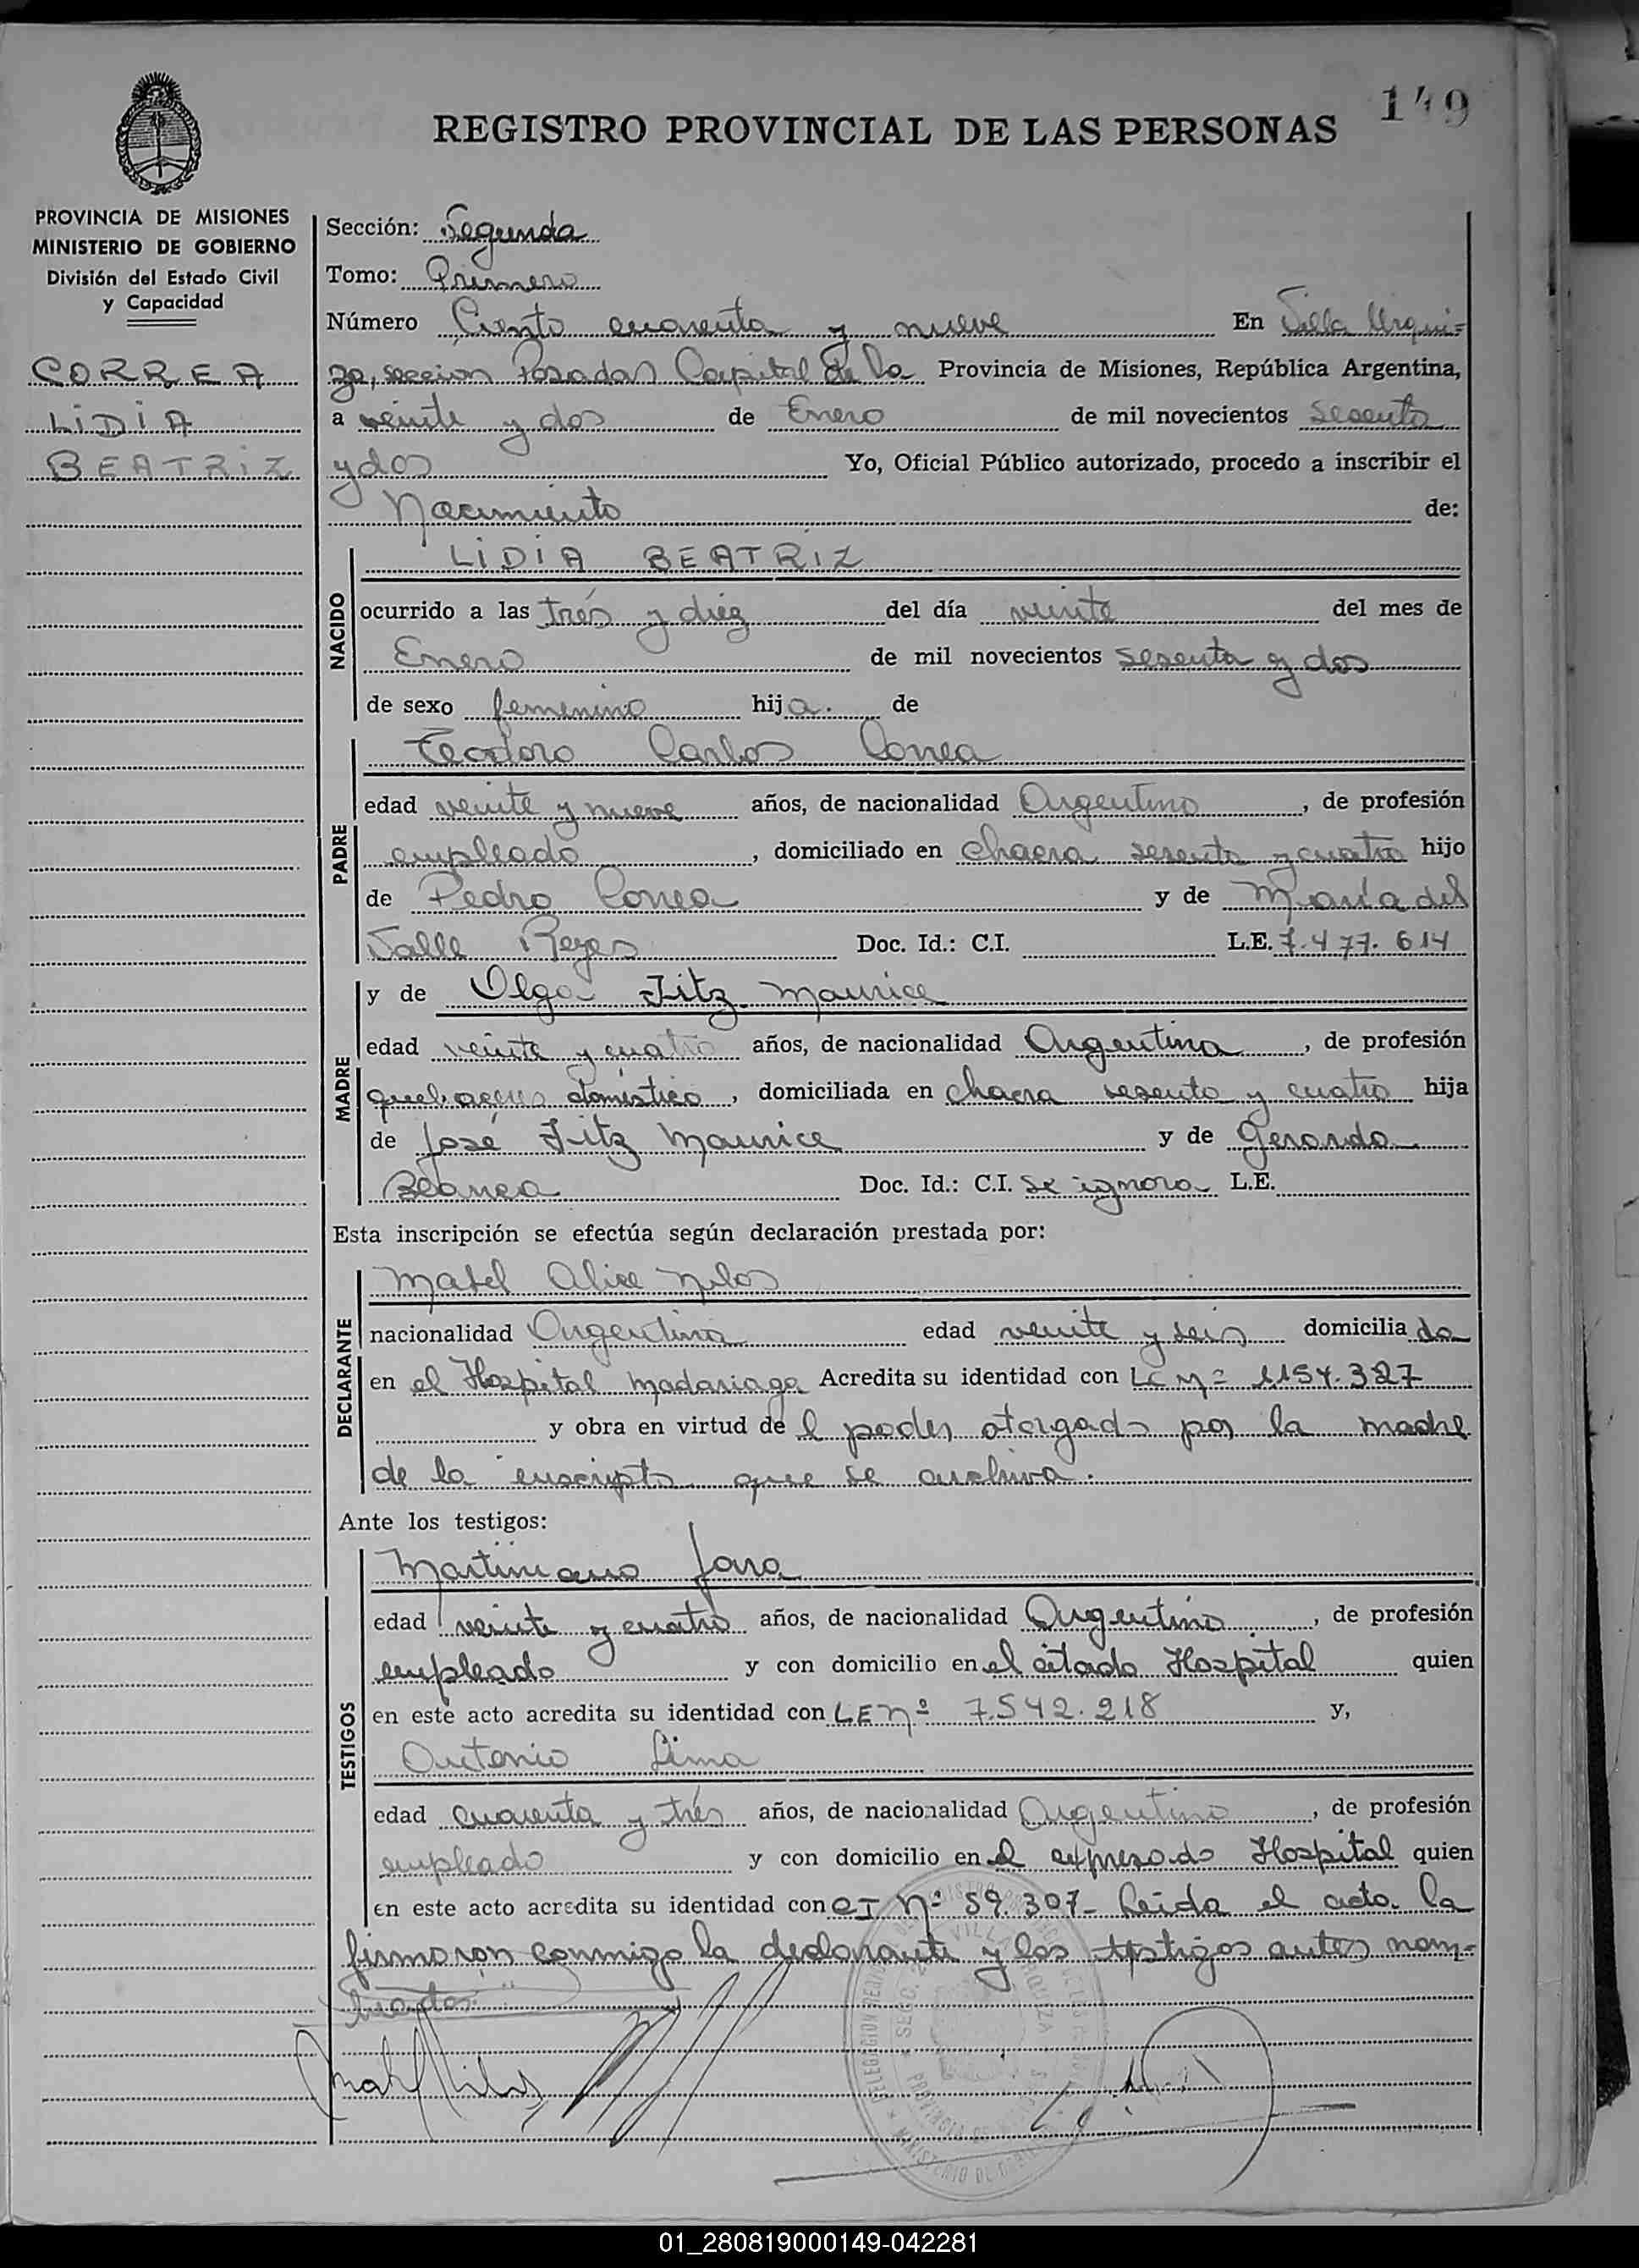 149
REGISTRO PROVINCIAL DE LAS PERSONAS
PROVINCIA DE MISIONES
MINISTERIO DE GOBIERNO
División del Estado Civil
y Capacidad
CORREA
LIDIA
BEATRIZ
Sección: Segunda
Tomo: Primero
Número Ciento cuarenta y nueve En Villa Urqui=
za, sección Posadas Capital de la Provincia de Misiones, República Argentina,
a veinte y dos de Enero de mil novecientos sesenta
y dos Yo, Oficial Público autorizado, procedo a inscribir el
Nacimiento de:
NACIDO
LIDIA BEATRIZ
ocurrido a las tres y diez del día veinte del mes de
Enero de mil novecientos sesenta y dos
de sexo femenino hija. de
PADRE
Teodoro Carlos Correa
edad veinte y nueve años, de nacionalidad Argentino, de profesión
empleado, domiciliado en chacra sesenta y cuatro hijo
de Pedro Correa y de María del
Valle Reyes Doc. Id.: C.I. L.E. 7.477.614
MADRE
y de Olga Fitz Maurice
edad veinte y cuatro años, de nacionalidad Argentina, de profesión
quehaceres doméstico, domiciliada en chacra sesenta y cuatro hija
de José Fitz Maurice y de Gerarda
Doc. Id.: C.I. se ignora L.E.
Esta inscripción se efectúa según declaración prestada por:
DECLARANTE
Mabel Alice Milos
nacionalidad Argentina edad veinte y seis domiciliada
en el Hospital Madariaga Acredita su identidad con LC Nº 1154.327
y obra en virtud del poder otorgado por la madre
de la inscripta que se archiva.
Ante los testigos:
TESTIGOS
Martiniano Jara
edad veinte y cuatro años, de nacionalidad Argentino, de profesión
empleado y con domicilio en el citado Hospital quien
en este acto acredita su identidad con LE Nº 7.542.218 y,
Antonio Lima
edad cuarenta y tres años, de nacionalidad Argentino, de profesión
empleado y con domicilio en el expresado Hospital quien
en este acto acredita su identidad con CI Nº 59.307- Leida el acta la
firmaron conmigo la declarante y los testigos antes nom=
brados.
01_280819000149-042281